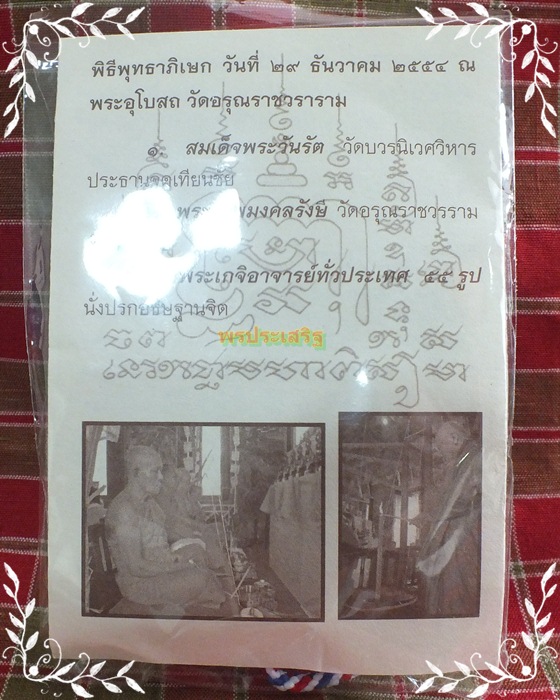 พิธีพุทธาภิเษก วันที่ ๒๙ ธันวาคม ๒๕๕๔ ณ
พระอุโบสถ วัดอรุณราชวราราม
๑. สมเด็จพระวันรัต วัดบวรนิเวศวิหาร
ประธานจุดเทียนชัย
มงคลรังษี วัดอรุณราชวรราม
พระเกจิอาจารย์ทั่วประเทศ ๕๕ รูป
นั่งปรกอธิษฐานจิต
พรประเสริฐ